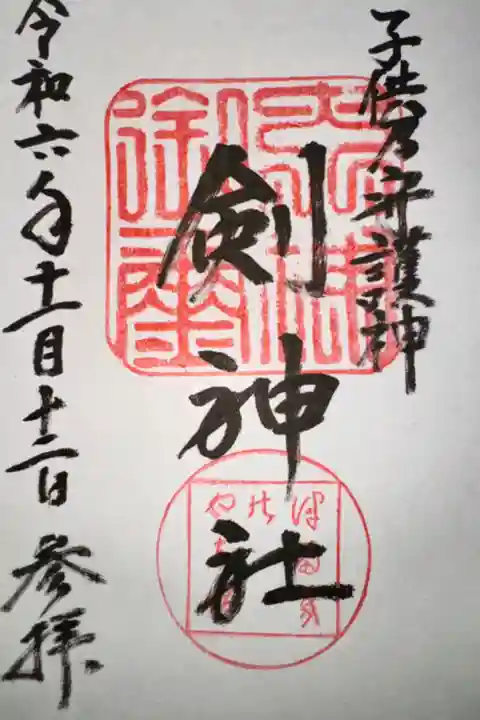 子供乃守護神
剣神社
令和六年十一月十二日 参拝